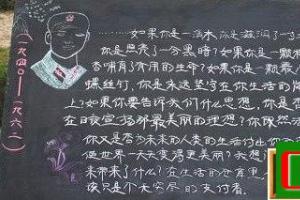 ……如果你是一滴水,你是否滋润了一寸
你是否照亮了一分黑暗?如果你是一颗
否哺育了有用的生命?如果你是一颗最
螺丝钉,你是否永远坚守在你生活的
上?如果你要告诉我们什么思想,你是否
在日夜宣扬那最美丽的理想?你既然活
你又是否为未来的人类的生活付出你
使世界一天天变得更美丽?我想
未来带来了什么?在生活的仓库里
该只是个无穷尽的支付者.
一九四〇——一九六二